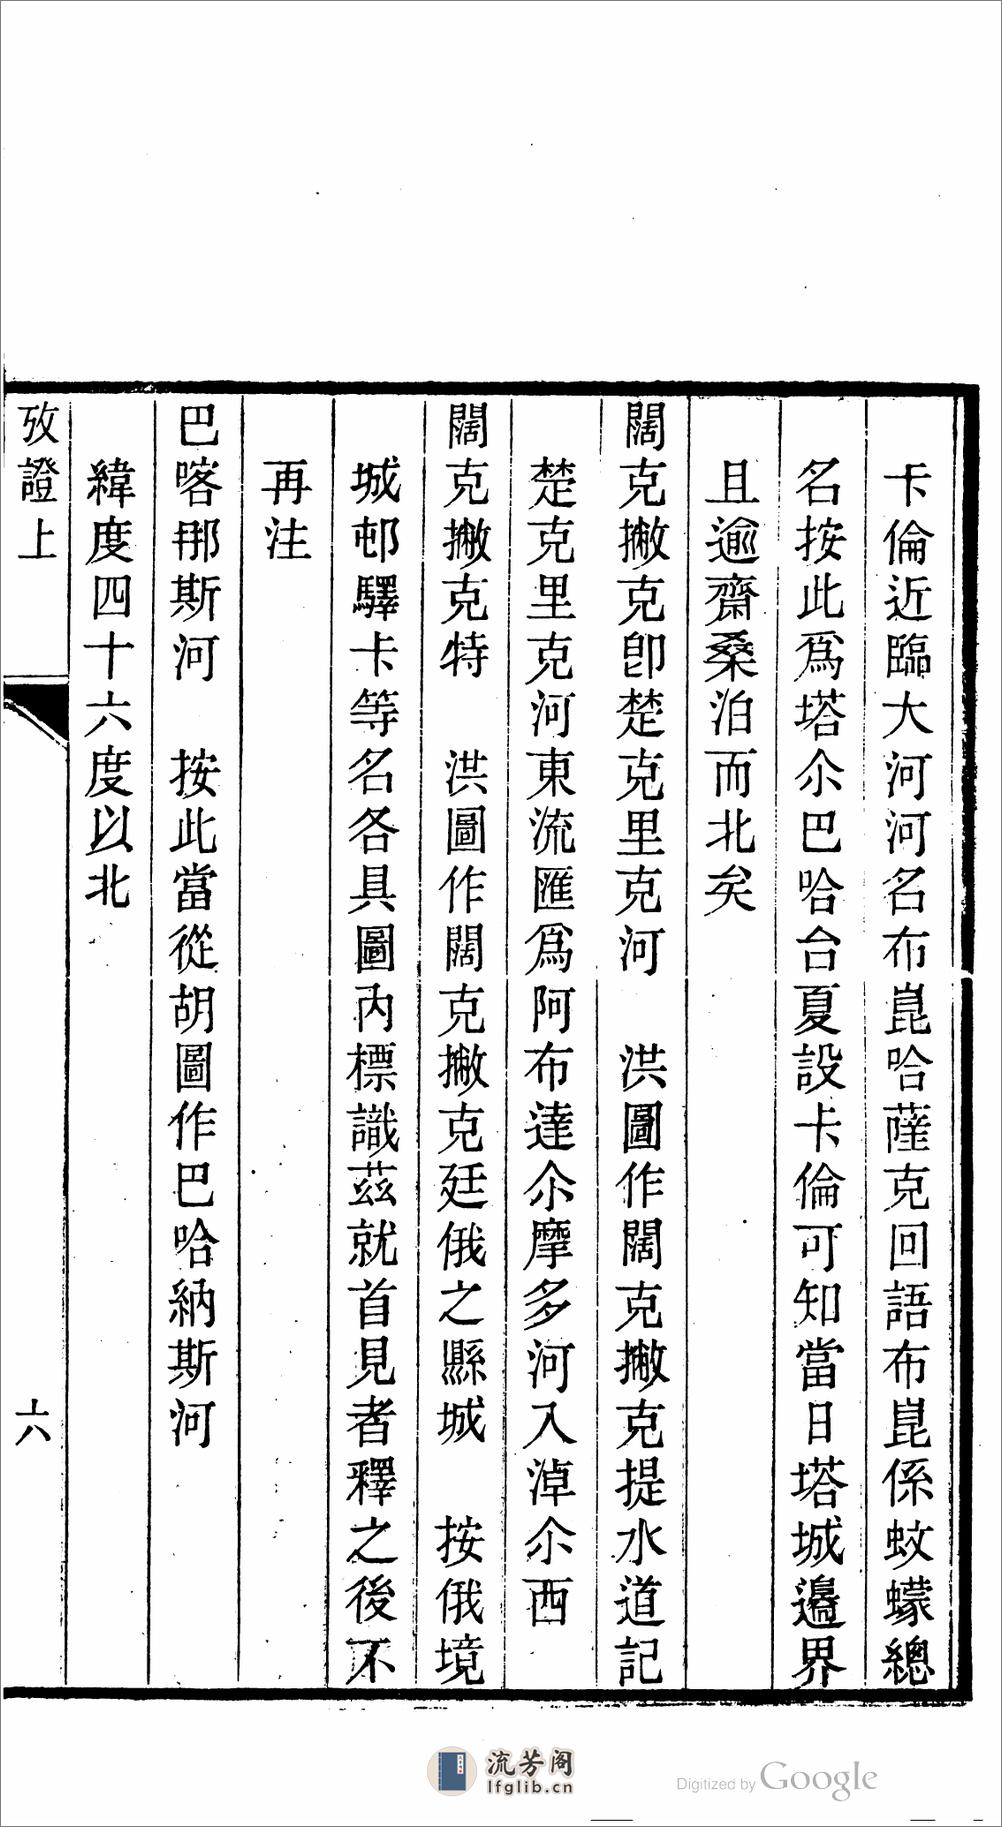 卡倫近臨大河河名布崑哈薩克回語布崑係蚊蠓總
名按此爲塔尒巴哈台夏設卡倫可知當日塔城邊界
且逾齋桑泊而北矣
闊克撇克卽楚克里克河　洪圖作闊克撇克提水道記
楚克里克河東流匯爲阿布達尒摩多河入淖尒西
闊克撇克特　洪圖作闊克撇克廷俄之縣城　按俄境
城邨驛卡等名各具圖內標識茲就首見者釋之後不
再注
巴喀那斯河　按此當從胡圖作巴哈納斯河
緯度四十六度以北
攷證上
六
流芳阁
lfglib.cn
Digitized by Google